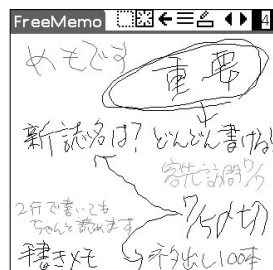 FreeMemo 4
めもです
重要
新雑誌名は? どんどん書ける!
客先訪問7/7
2行で書いても
ちゃんと読めます
7/5〆切
手書きメモ
ネタ出し100本